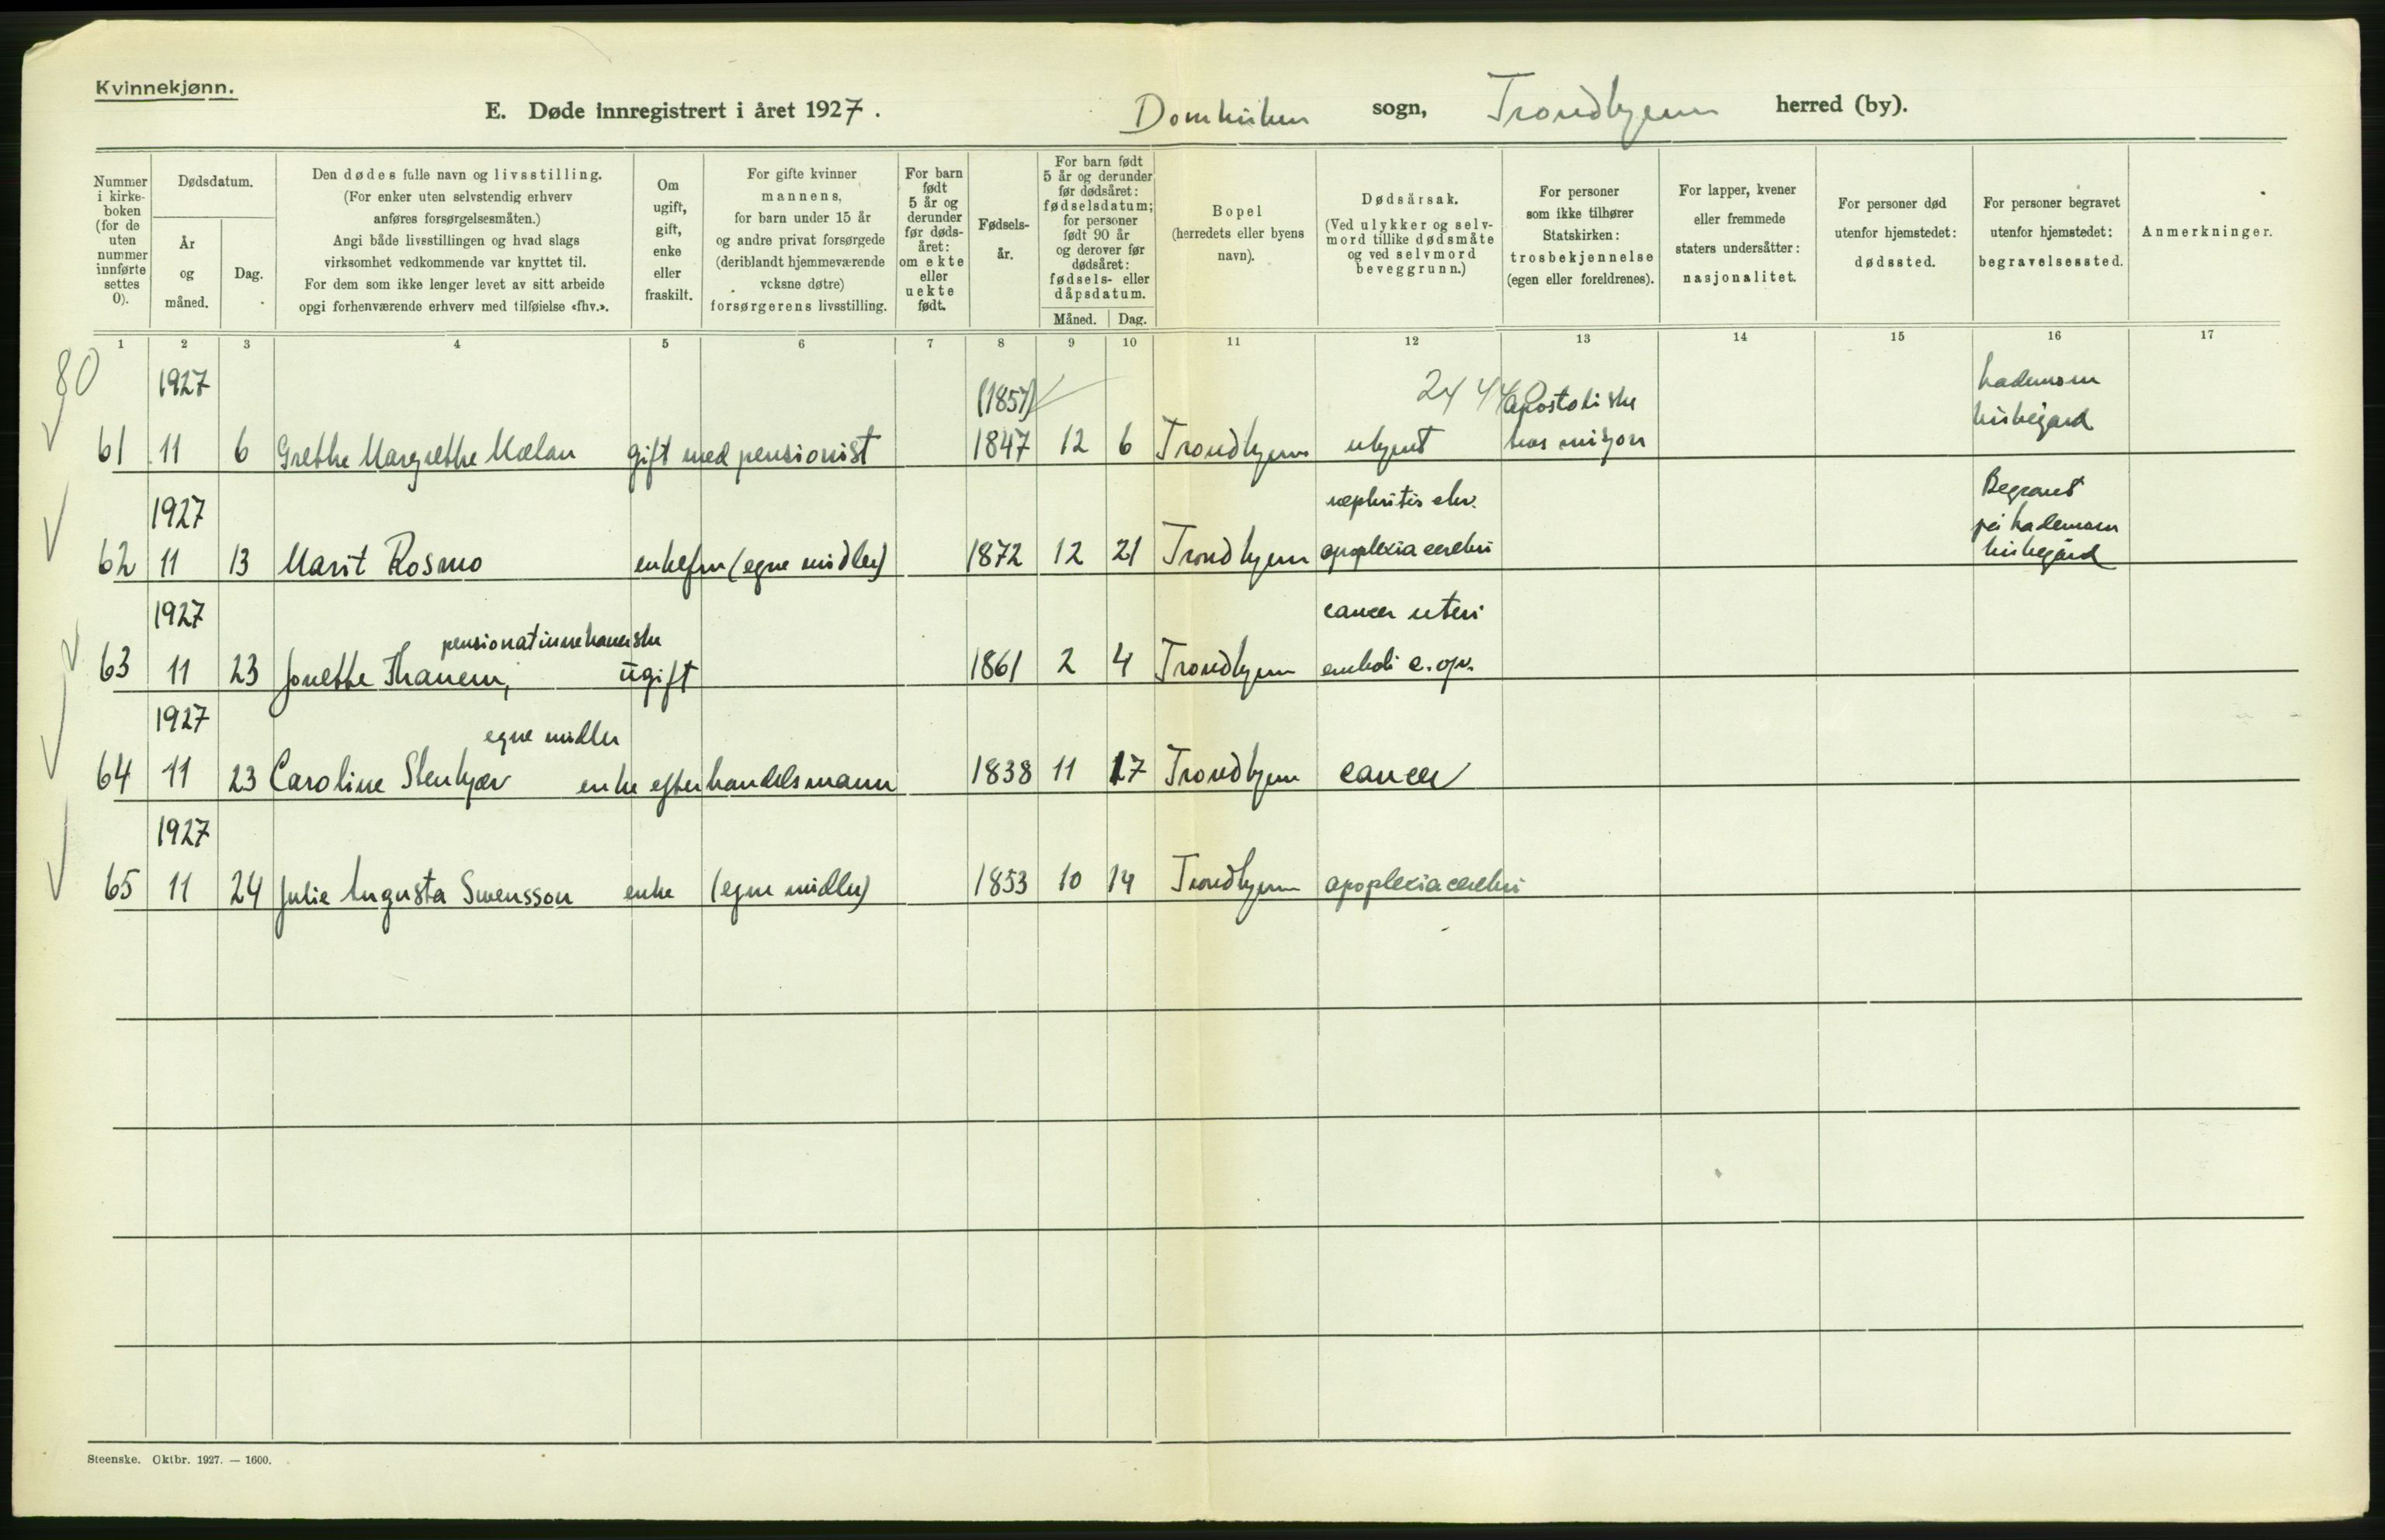 Kvinnekjønn.
E. Døde innregistrert i året 1927. Domkirken sogn, Trondhjem herred (by).
Nummer i kirkeboken (for de uten nummer innførte settes 0).
Dødsdatum.
År og måned.
Dag.
Den dødes fulle navn og livsstilling.
(For enker uten selvstendig erhverv
anføres forsørgelsesmåten.)
Angi både livsstillingen og hvad slags
virksomhet vedkommende var knyttet til.
For dem som ikke lenger levet av sitt arbeide
opgi forhenværende erhverv med tilføielse «fhv.».
Om ugift, gift, enke eller fraskilt.
For gifte kvinner
mannens,
for barn under 15 år
og andre privat forsørgede
(deriblandt hjemmeværende
voksne døtre)
forsørgerens livsstilling.
For barn født 5 år og derunder før dødsåret: om ekte eller uekte født.
Fødselsår.
For barn født
5 år og derunder
før dødsåret:
fødselsdatum;
for personer
født 90 år
og derover før
dødsåret:
fødsels- eller
dåpsdatum.
Måned. Dag.
Bopel
(herredets eller byens
navn).
Dødsårsak.
(Ved ulykker og selv-
mord tillike dødsmåte
og ved selvmord
beveggrunn.)
For personer
som ikke tilhører
Statskirken:
trosbekjennelse
(egen eller foreldrenes).
For lapper, kvener
eller fremmede
staters undersåtter:
nasjonalitet.
For personer død
utenfor hjemstedet:
dødssted.
For personer begravet
utenfor hjemstedet:
begravelsessted.
Anmerkninger.
1 2 3 4 5 6 7 8 9 10 11 12 13 14 15 16 17
80
1927 (1857) 24 44 apostoliske lademoen kirkegård
61 11 6 Grethe Margrethe Mælan gift med pensionist 1847 12 6 Trondhjem ukjent tros misjon
1927 nephritis chr. Begravet på lademoen
62 11 13 Marit Rosmo enkefru (egne midler) 1872 12 21 Trondhjem apoplexia cerebri kirkegård
1927 pensionatinnehaverske cancer uteri
63 11 23 Jonette Thanem, ugift 1861 2 4 Trondhjem emboli e. op.
1927 egne midler
64 11 23 Caroline Stenkjær enke efter handelsmann 1838 11 17 Trondhjem cancer
1927
65 11 24 Julie Augusta Swensson enke (egne midler) 1853 10 14 Trondhjem apoplexia cerebri
Steenske. Oktbr. 1927. — 1600.